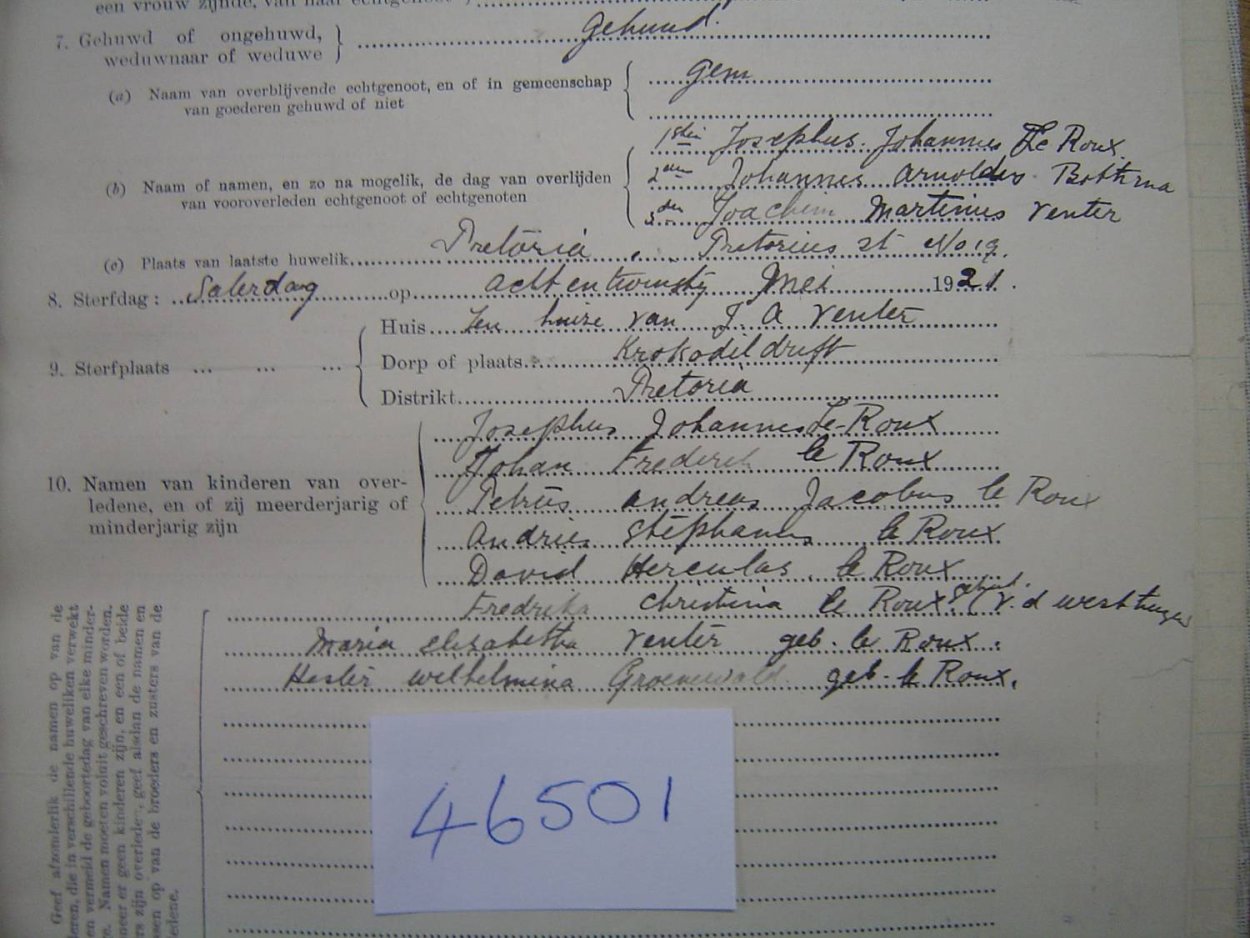 een vrouw zijnde, van haar echtgenoot
7. Gehuwd of ongehuwd, weduwnaar of weduwe } gehuwd.
(a) Naam van overblijvende echtgenoot, en of in gemeenschap van goederen gehuwd of niet { gem
(b) Naam of namen, en zo na mogelik, de dag van overlijden van vooroverleden echtgenoot of echtgenoten {
1sten Josephus Johannes Le Roux
2den Johannes Arnoldus Bothma
3den Joachem Martinus Venter
(c) Plaats van laatste huwelik Pretoria, Pretorius st No 19.
8. Sterfdag: Saterdag op acht en twinstig Mei 1921.
9. Sterfplaats ... ... ... {
Huis Ten huize van J A Venter
Dorp of plaats Krokodildrift
Distrikt Pretoria
10. Namen van kinderen van over-
ledene, en of zij meerderjarig of
minderjarig zijn
Josephus Johannes Le-Roux
Johan Frederik le Roux
Petrus andreas Jacobus le Roux
Andries Stephanus le Roux
David Herculas le Roux
Fredrika Christina le Roux (v. d westhuyzen
Maria elisabetha Venter geb. le Roux.
Hester wilhelmina Groenewald geb. le Roux.
Geef afzonderlik de namen op van de
deren, die in verschillende huweliken verwekt
en vermeld de geboortedag van elke minder-
e. Namen moeten voluit geschreven worden.
neer er geen kinderen zijn, en een of beide
rs zijn overleden, geef alsdan de namen en
sen op van de broeders en zusters van de
ledene.
46501